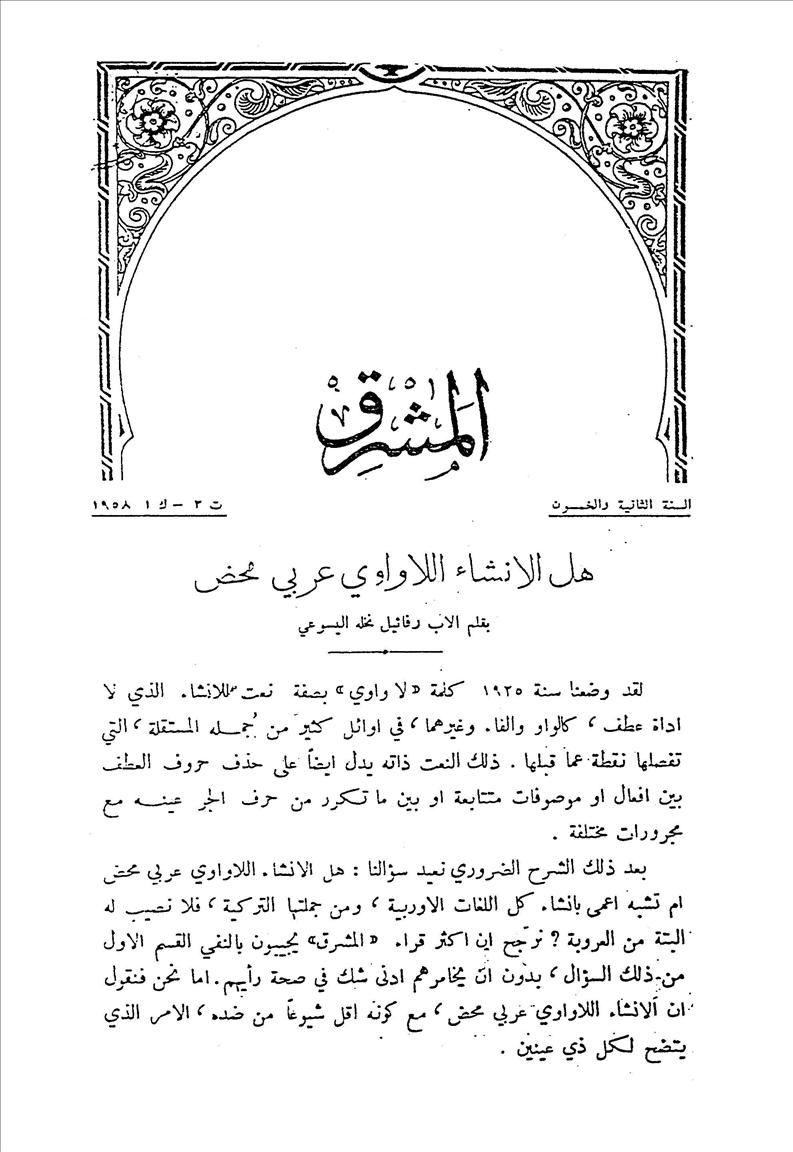 المشرق
السنة الثانية والخمسون
ت ٢ – ك ١ ١٩٥٨
هل الانشاء اللاواوي عربي محض
بقلم الاب رفائيل نخله اليسوعي
لقد وضعنا سنة ١٩٢٥ كلمة «لا واوي» بصفة نعت للانشاء الذي لا
اداة عطف ، كالواو والفاء وغيرهما ، في اوائل كثير من جُمله المستقلة ، التي
تفصلها نقطة عما قبلها . ذلك النعت ذاته يدل ايضاً على حذف حروف العطف
بين افعال او موصوفات متتابعة او بين ما تكرر من حرف الجر عينه مع
مجرورات مختلفة .
بعد ذلك الشرح الضروري نعيد سؤالنا : هل الانشاء اللاواوي عربي محض
ام تشبه اعمى بانشاء كل اللغات الاوربية ، ومن جملتها التركية ، فلا نصيب له
البتة من العروبة ? نرجّح ان اكثر قراء «المشرق» يجيبون بالنفي القسم الاول
من ذلك السؤال ، بدون ان يخامرهم ادنى شك في صحة رأيهم . اما نحن فنقول
ان الانشاء اللاواوي عربي محض ، مع كونه اقل شيوعاً من ضده ، الامر الذي
يتضح لكل ذي عينين .